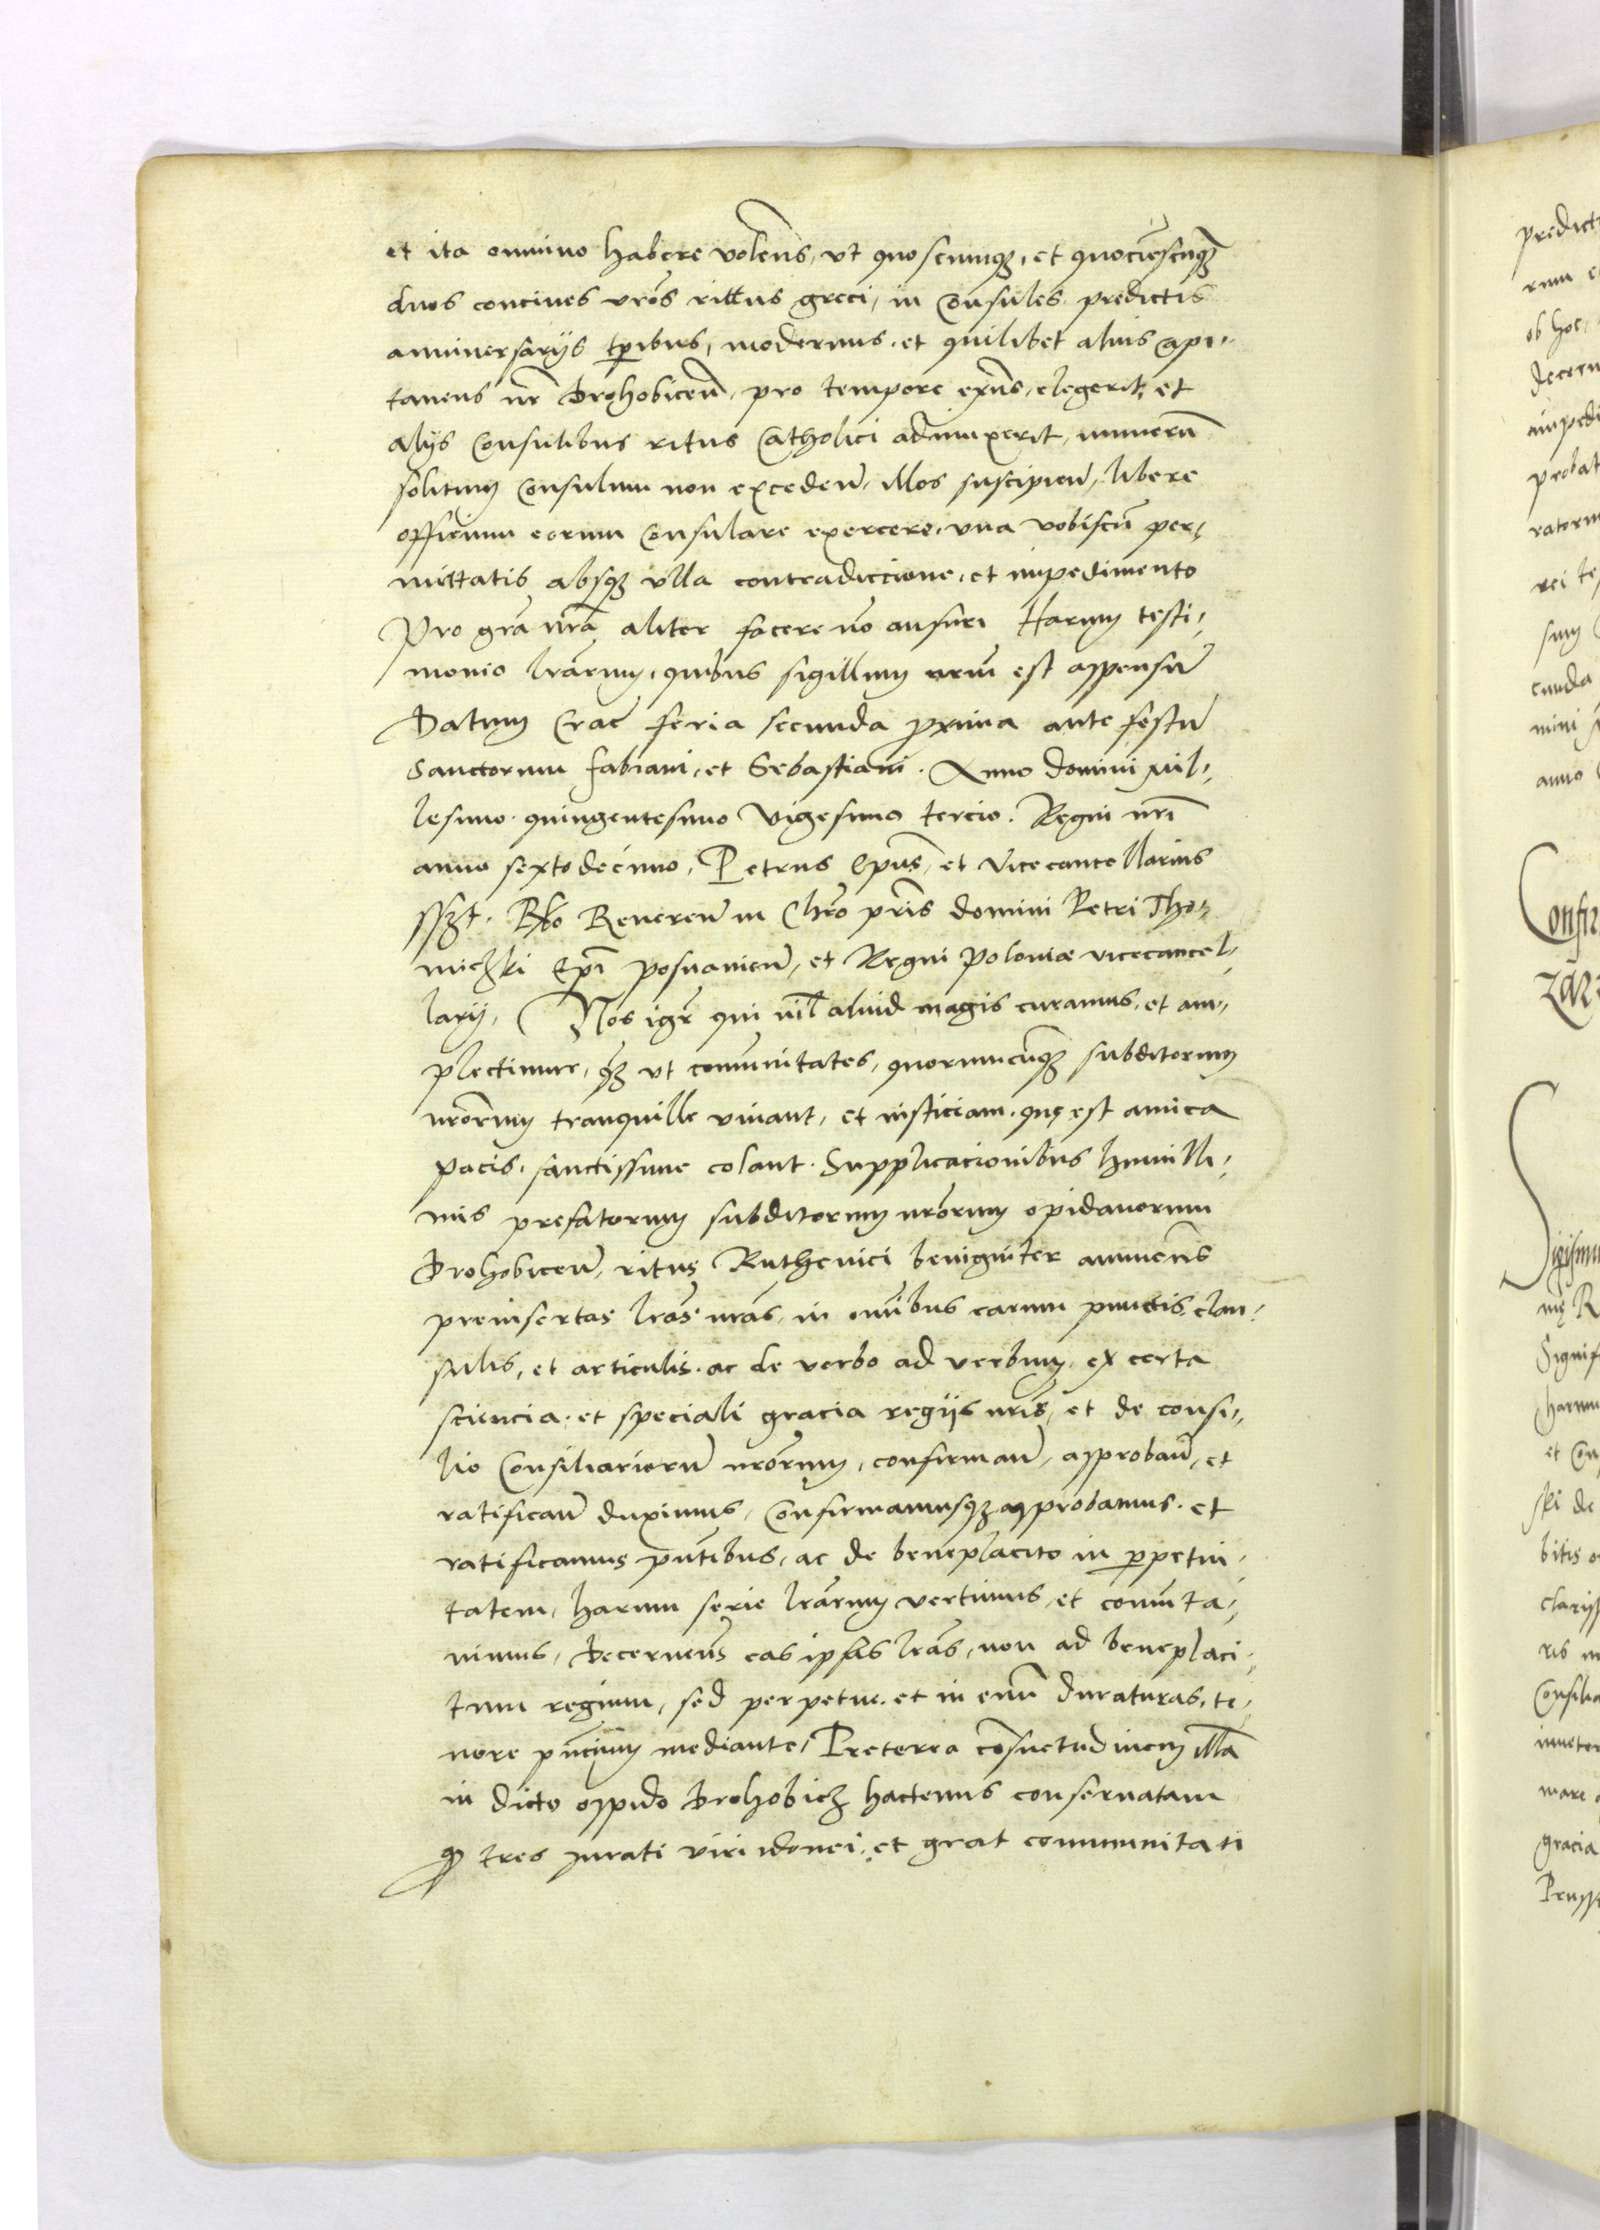 et ita omnino habere volens, ut quoscumq;, et quociescūq;
duos concives vros rittus greci, in Consules predictis
anniversarijs tpribus, modernus, et quilibet alius Capi-
taneus nr Drohobiceñ, pro tempore exñs, elegerit, et
alijs Consulibus ritus Catholici adiunxerit, numerū
solitum Consulum non excedeñ, illos suscipieñ, libere
officium eorum Consulare exercere, una vobiscū per-
mittatis absq; ulla contradiccione, et impedimento
Pro gra nra aliter facere nō ausuri Harum testi-
monio lrarum, quibus sigillum nrum est appensū
Datum Crac feria secunda proxima ante festū
Sanctorum Fabiani, et Sebastiani. Anno domini Mil-
lesimo quingentesimo Vigesimo tercio. Regni nri
anno sextodecimo, Petrus Epus, et Vicecancellarius
sszt. Rlo Revereñ in Chro pris domini Petri Tho-
miczki Epi Posnanieñ, et Regni Poloniæ vicecancel-
larij. Nos igr qui nil aliud magis curamus, et am-
plectimur, q; ut comunitates, quorumcūq; subditorum
nrorum tranquille vivant, et iusticiam, quę est amica
pacis, sanctissime colant. Supplicacionibus humilli-
mis prefatorum subditorum nrorum opidanorum
Drohobiceñ, ritus Ruthenici benigniter annuens
preinsertas lras nras, in omībus earum punctis, clau-
sulis, et articulis, ac de verbo ad verbum, ex certa
sciencia, et speciali gracia regijs nris, et de consi-
lio Consiliariorū nrorum, confirmañ, approbañ, et
ratificañ duximus, Confirmamusq; approbamus, et
ratificamus pntibus, ac de beneplacito in perpetui-
tatem, harum serie lrarum vertimus, et comuta-
vimus, Decernens eas ipsas lras, non ad beneplaci-
tum regium, sed perpetue, et in evū duraturas, te-
nore pncium mediante, Preterea cōsuetudinem illā
in dicto oppido Drohobicz hactenus conservatam
q tres jurati viri idonei, et grat communitati